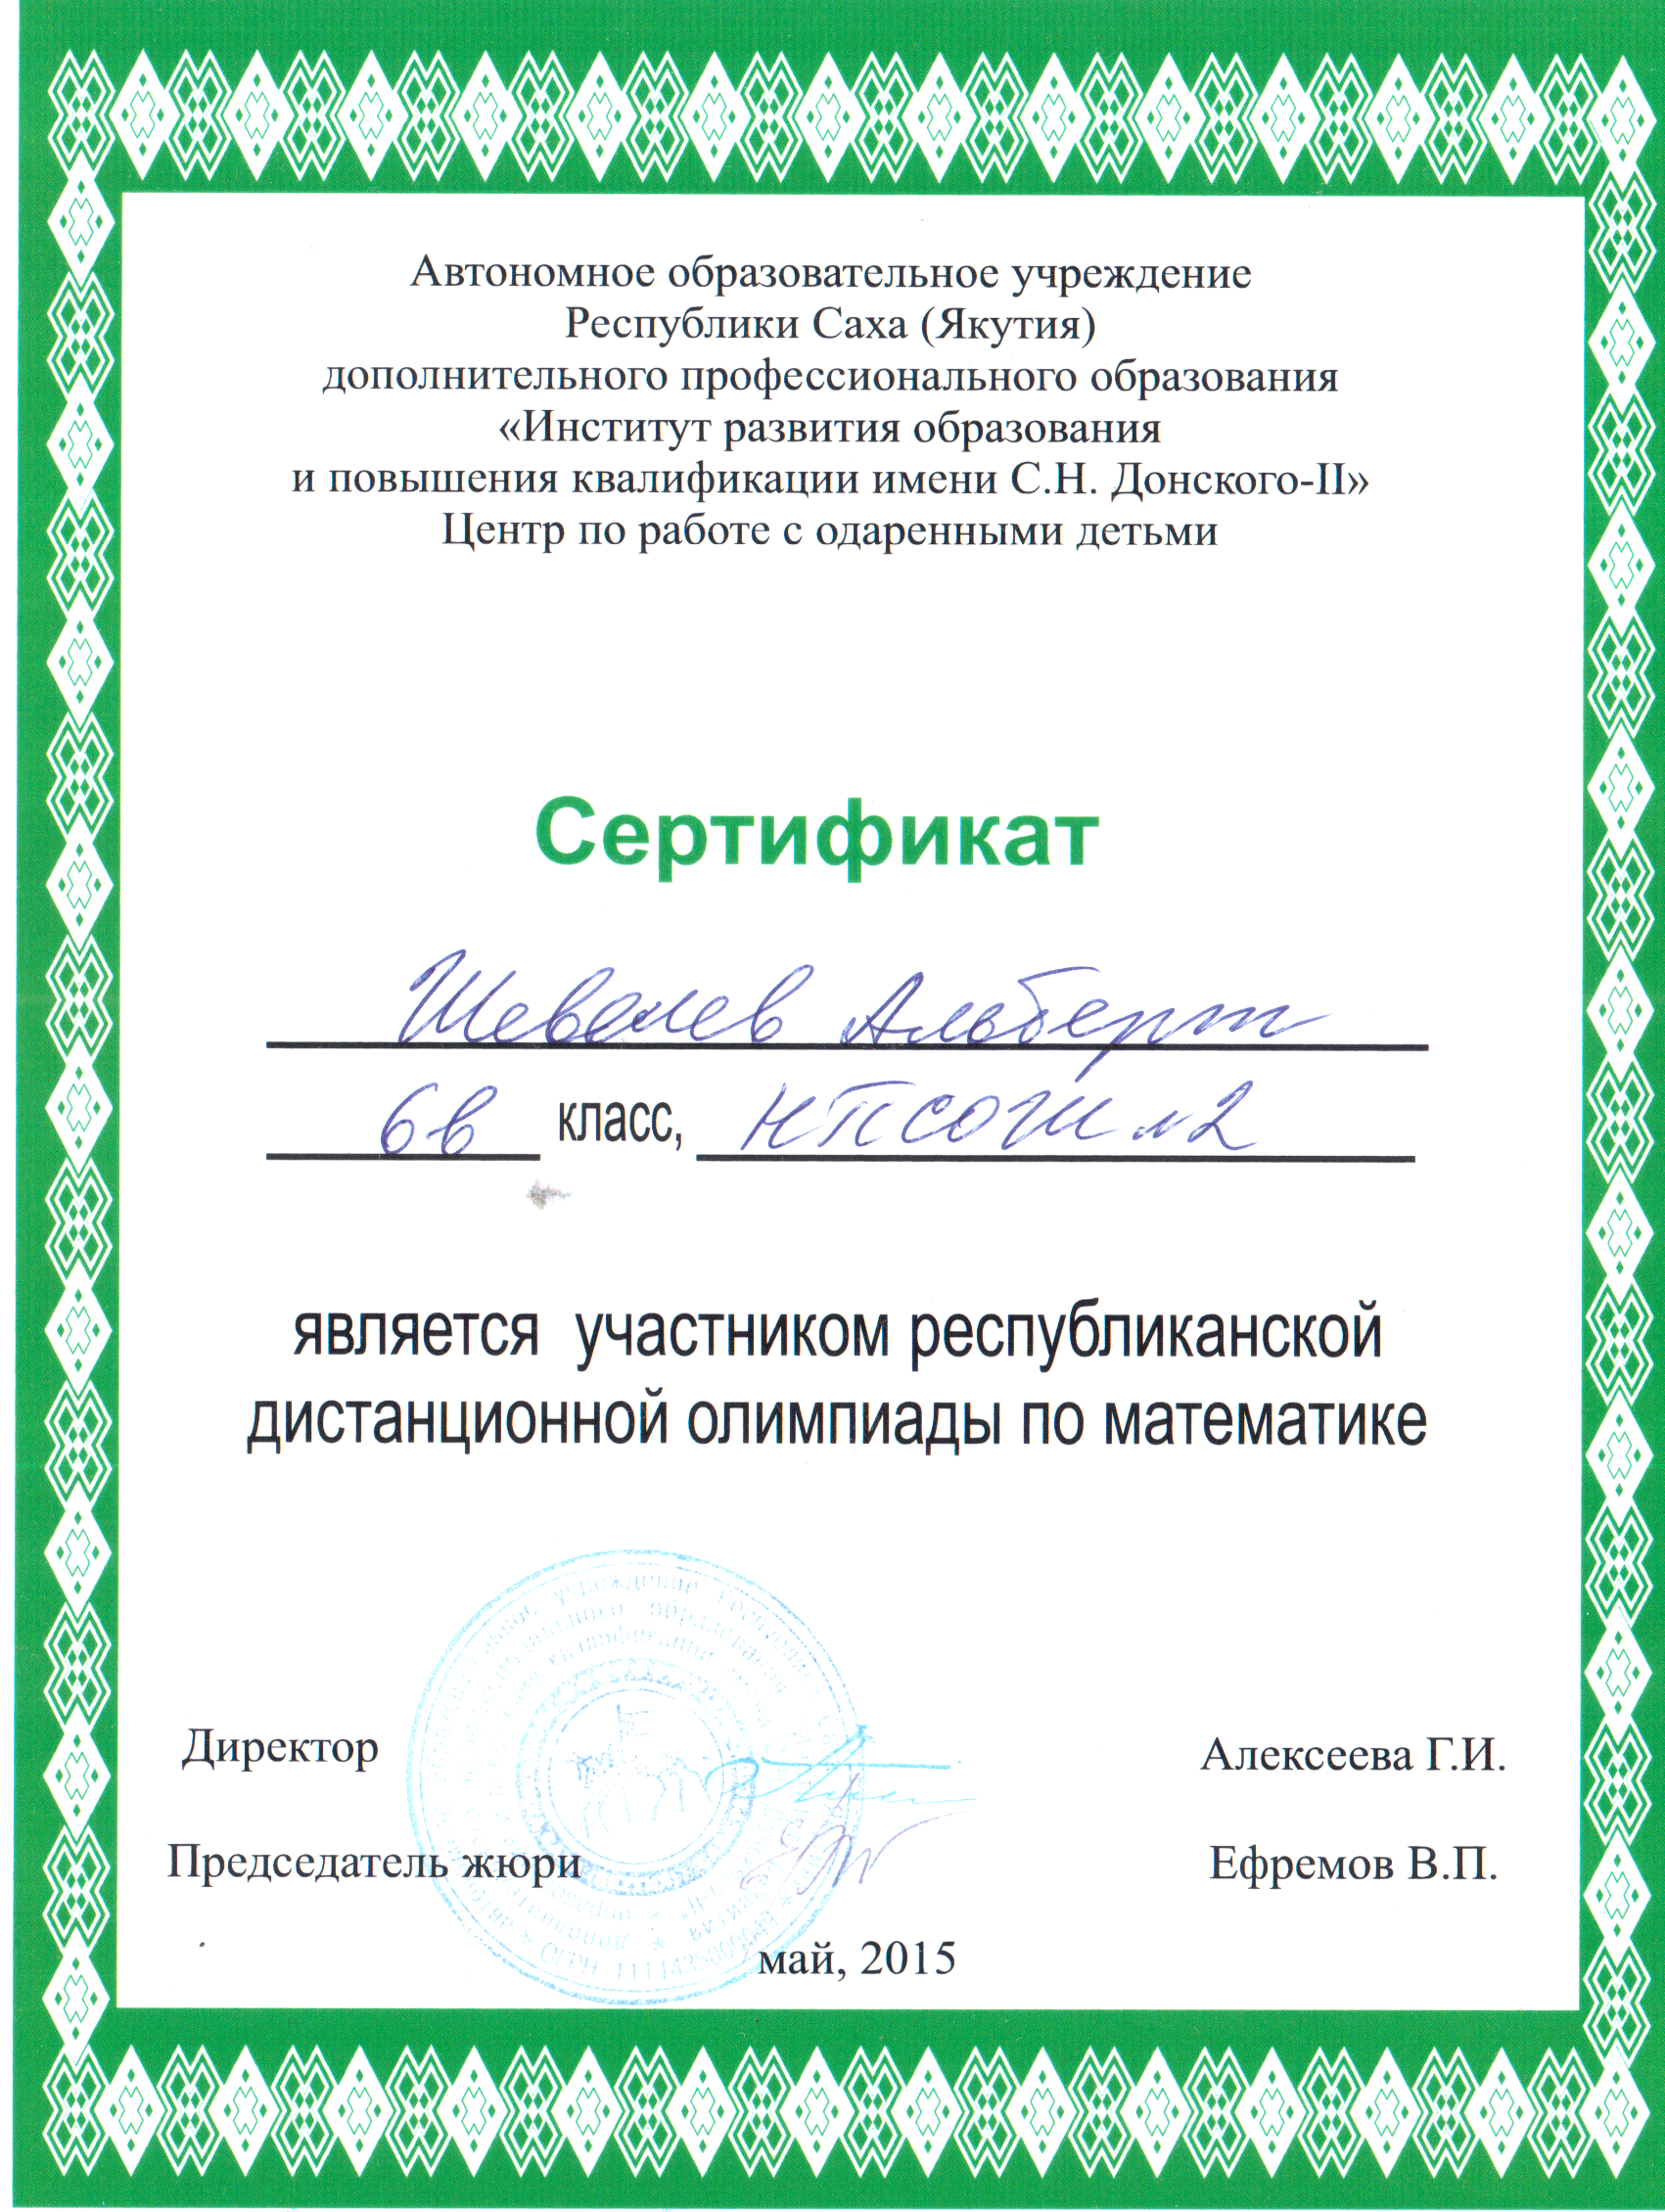 Автономное образовательное учреждение
Республики Саха (Якутия)
дополнительного профессионального образования
«Институт развития образования
и повышения квалификации имени С.Н. Донского-II»
Центр по работе с одаренными детьми
Сертификат
Шевелев Альберт
6в класс, НПСОШ №2
является участником республиканской
дистанционной олимпиады по математике
Директор Алексеева Г.И.
Председатель жюри Ефремов В.П.
май, 2015